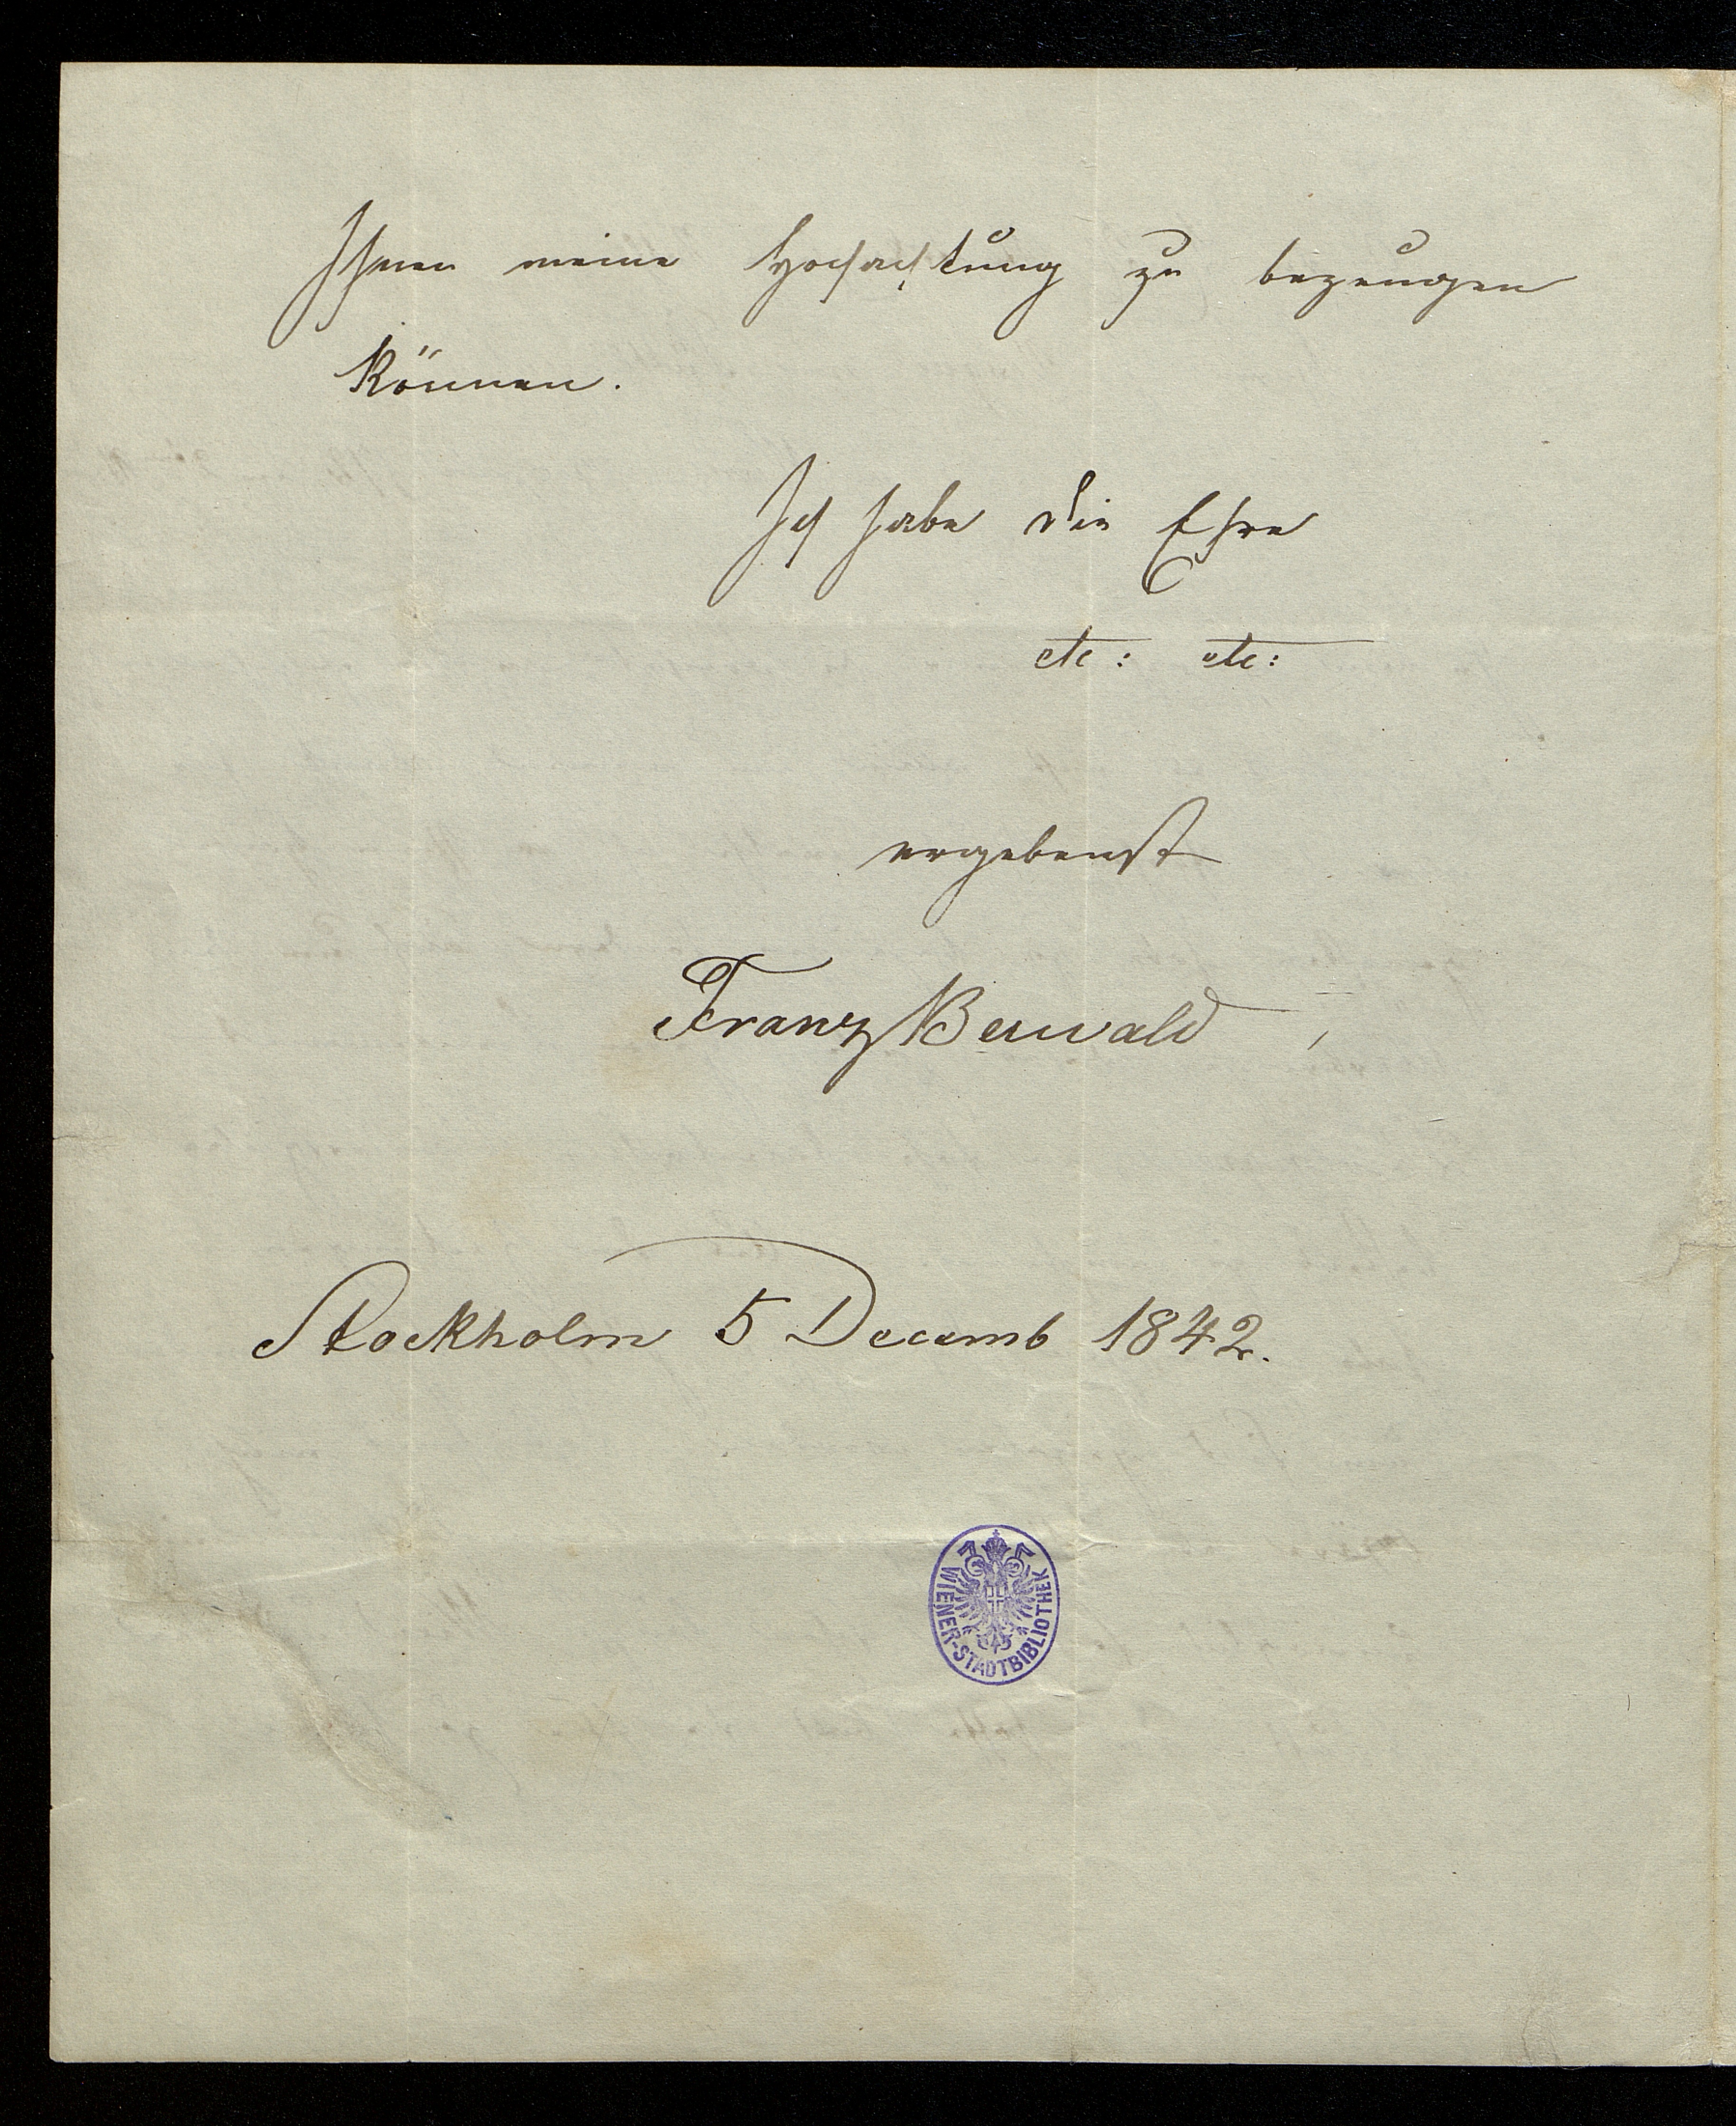 Ihnen meine Hochachtung zu bezeugen
können.
Ich habe die Ehre
etc: etc:
ergebenst
Franz Berwald
Stockholm 5 Decemb 1842.
WIENER-STADTBIBLIOTHEK